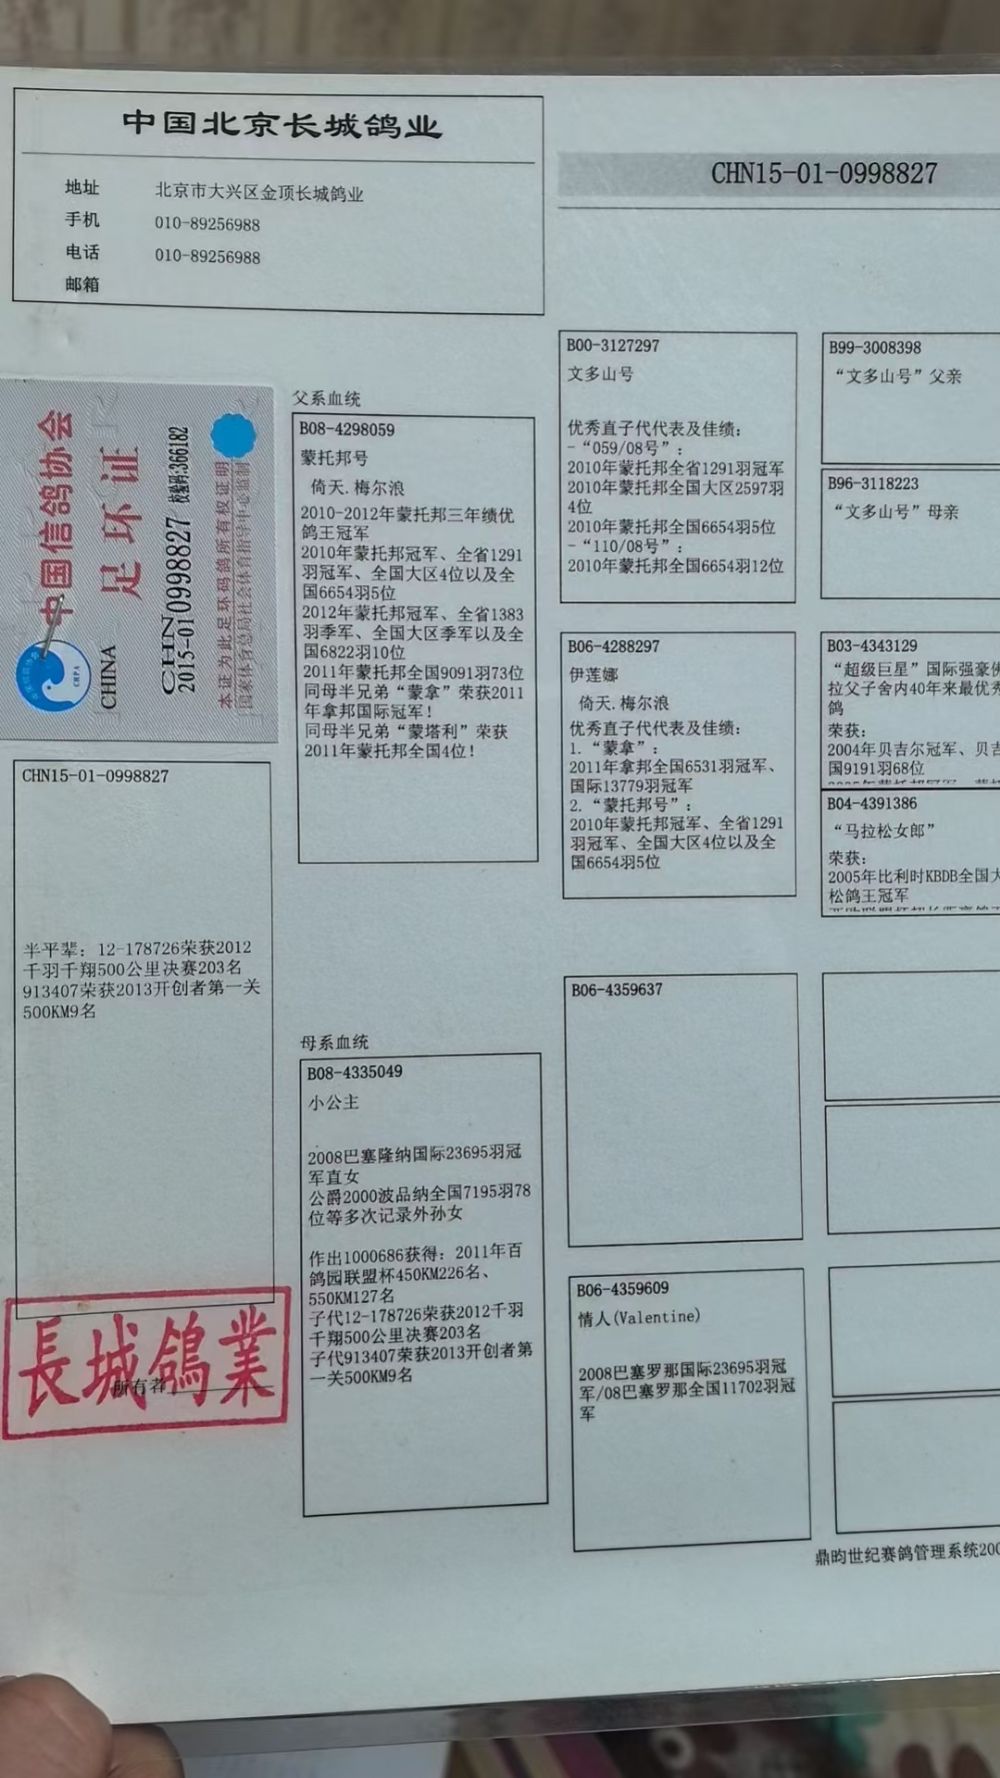 中国北京长城鸽业
地址 北京市大兴区金顶长城鸽业
手机 010-89256988
电话 010-89256988
邮箱
CHN15-01-0998827
中国信鸽协会
足环证
CHINA
CHN
2015-01 0998827 校验码:366182
本证为此足环码鸽所有权证明
国家体育总局社会体育指导中心监制
CHPA
CHN15-01-0998827
半平辈：12-178726荣获2012
千羽千翔500公里决赛203名
913407荣获2013开创者第一关
500KM9名
所有者
長城鴿業
父系血统
B08-4298059
蒙托邦号
倚天.梅尔浪
2010-2012年蒙托邦三年绩优
鸽王冠军
2010年蒙托邦冠军、全省1291
羽冠军、全国大区4位以及全
国6654羽5位
2012年蒙托邦冠军、全省1383
羽季军、全国大区季军以及全
国6822羽10位
2011年蒙托邦全国9091羽73位
同母半兄弟“蒙拿”荣获2011
年拿邦国际冠军！
同母半兄弟“蒙塔利”荣获
2011年蒙托邦全国4位！
母系血统
B08-4335049
小公主
2008巴塞隆纳国际23695羽冠
军直女
公爵2000波品纳全国7195羽78
位等多次记录外孙女
作出1000686获得：2011年百
鸽园联盟杯450KM226名、
550KM127名
子代12-178726荣获2012千羽
千翔500公里决赛203名
子代913407荣获2013开创者第
一关500KM9名
B00-3127297
文多山号
优秀直子代代表及佳绩：
-“059/08号”：
2010年蒙托邦全省1291羽冠军
2010年蒙托邦全国大区2597羽
4位
2010年蒙托邦全国6654羽5位
-“110/08号”：
2010年蒙托邦全国6654羽12位
B06-4288297
伊莲娜
倚天.梅尔浪
优秀直子代代表及佳绩：
1.“蒙拿”：
2011年拿邦全国6531羽冠军、
国际13779羽冠军
2.“蒙托邦号”：
2010年蒙托邦冠军、全省1291
羽冠军、全国大区4位以及全
国6654羽5位
B06-4359637
B06-4359609
情人(Valentine)
2008巴塞罗那国际23695羽冠
军/08巴塞罗那全国11702羽冠
军
B99-3008398
“文多山号”父亲
B96-3118223
“文多山号”母亲
B03-4343129
“超级巨星”国际强豪佛
拉父子舍内40年来最优秀
鸽
荣获：
2004年贝吉尔冠军、贝吉
国9191羽68位
B04-4391386
“马拉松女郎”
荣获：
2005年比利时KBDB全国大
松鸽王冠军
鼎昀世纪赛鸽管理系统200